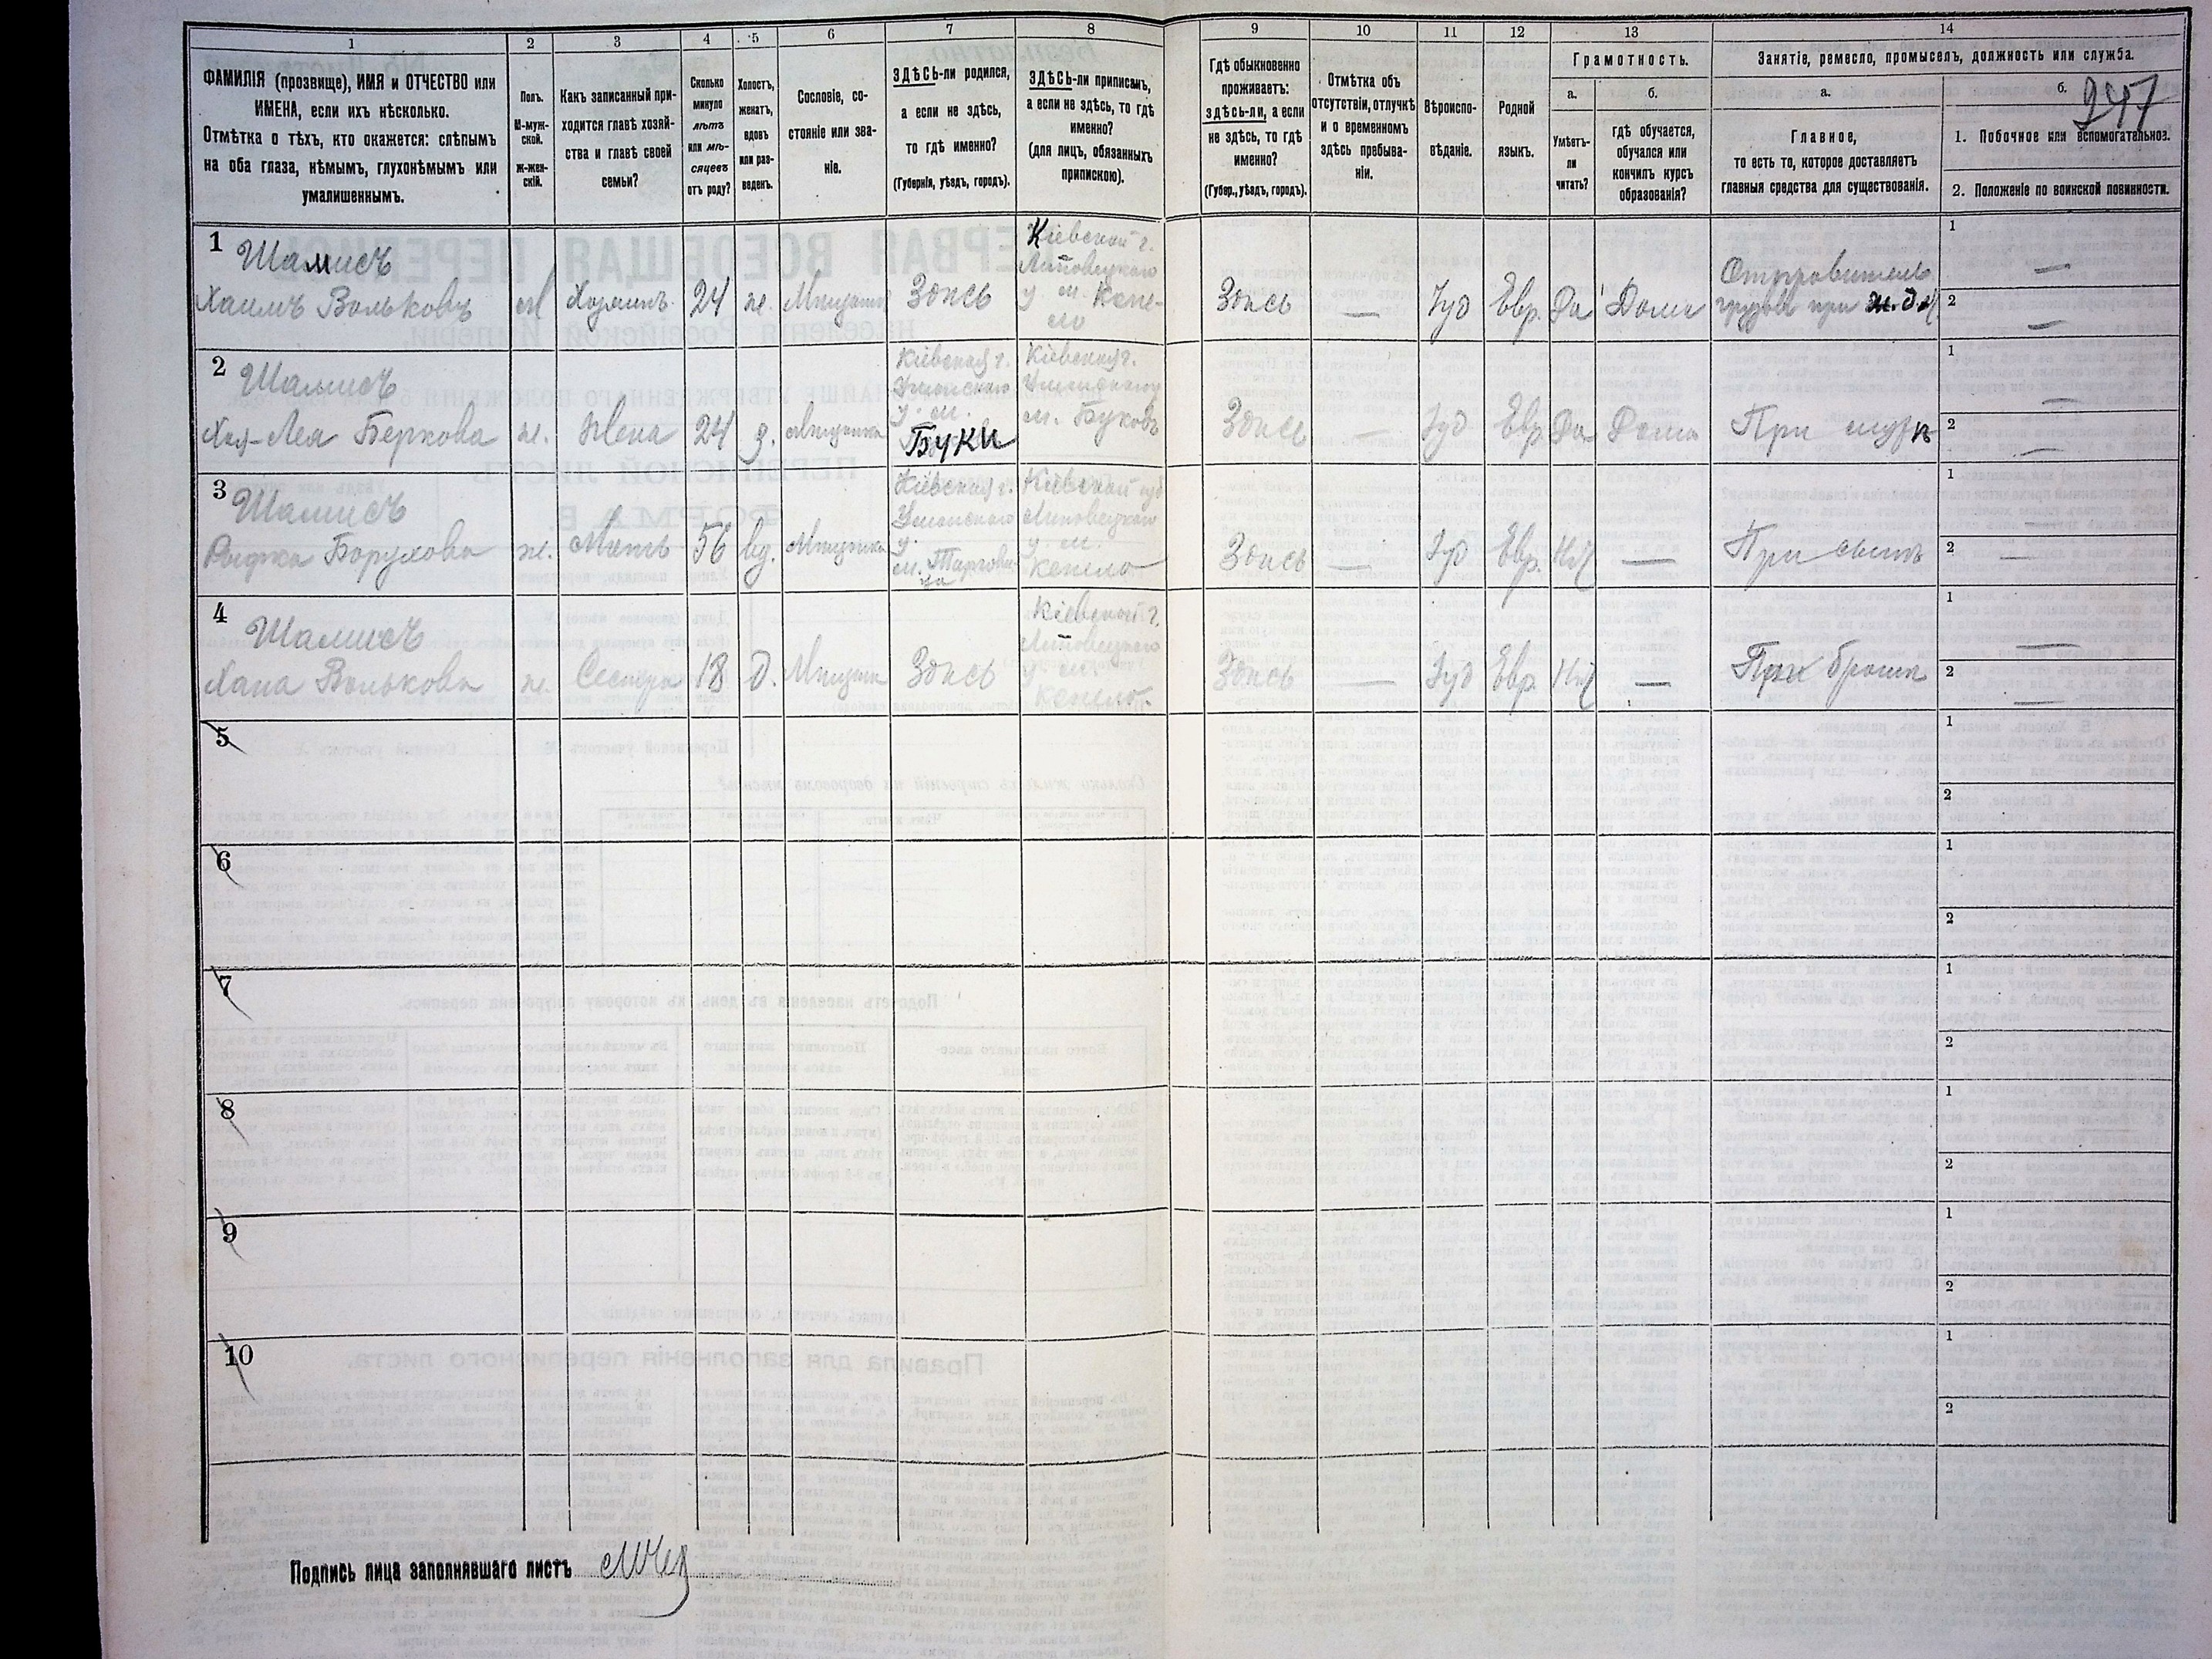 1 2 3 4 5 6 7 8 9 10 11 12 13 14
ФАМИЛІЯ (прозвище), ИМЯ и ОТЧЕСТВО или
ИМЕНА, если ихъ нѣсколько.
Отмѣтка о тѣхъ, кто окажется: слѣпымъ
на оба глаза, нѣмымъ, глухонѣмымъ или
умалишеннымъ.
Полъ.
М-муж-
ской.
ж-жен-
скій.
Какъ записанный при-
ходится главѣ хозяй-
ства и главѣ своей
семьи?
Сколько
минуло
лѣтъ
или мѣ-
сяцевъ
отъ роду?
Холостъ,
женатъ,
вдовъ
или раз-
веденъ.
Сословіе, со-
стояніе или зва-
ніе.
ЗДѢСЬ-ли родился,
а если не здѣсь,
то гдѣ именно?
(Губернія, уѣздъ, городъ).
ЗДѢСЬ-ли приписанъ,
а если не здѣсь, то гдѣ
именно?
(для лицъ, обязанныхъ
припискою).
Гдѣ обыкновенно
проживаетъ:
здѣсь-ли, а если
не здѣсь, то гдѣ
именно?
(Губер., уѣздъ, городъ).
Отмѣтка объ
отсутствіи, отлучкѣ
и о временномъ
здѣсь пребыва-
ніи.
Вѣроиспо-
вѣданіе.
Родной
языкъ.
Грамотность.
а.
Умѣетъ-
ли
читать?
б.
гдѣ обучается,
обучался или
кончилъ курсъ
образованія?
Занятіе, ремесло, промыселъ, должность или служба.
а.
Главное,
то есть то, которое доставляетъ
главныя средства для существованія.
б.
247
1. Побочное или вспомогательное.
2. Положеніе по воинской повинности.
1
Шамисъ
Хаимъ Вольковъ
м
Хозяинъ
24
ж.
Мѣщанинъ
Здѣсь
Кіевской г.
Липовецкаго
у м. Копе-
ло
Здѣсь
—
Іуд
Евр.
Да
Дома
Отправитель
грузовъ при ж.д.
1 —
2 —
2
Шамисъ
Хая-Лея Беркова
ж.
Жена
24
з.
Мѣщанка
Кіевская г.
Уманскаго
у. м.
Буки
Кіевская г.
Уманскаго
м. Буковъ
Здѣсь
—
Іуд
Евр.
Да
Дома
При мужѣ
1 —
2 —
3
Шамисъ
Рифка Борухова
ж.
Мать
56
вд.
Мѣщанка
Кіевская г.
Уманскаго
у.
м. Таргови-
ца
Кіевской губ
Липовецкаго
у м.
Копело
Здѣсь
—
Іуд
Евр.
Нѣт
—
При сынѣ
1 —
2 —
4
Шамисъ
Хана Волькова
ж.
Сестра
18
д.
Мѣщанка
Здѣсь
Кіевской г.
Липовецкаго
у м.
Копело.
Здѣсь
—
Іуд
Евр.
Нѣт
—
При братѣ
1 —
2 —
5
1
2
6
1
2
7
1
2
8
1
2
9
1
2
10
1
2
Подпись лица заполнявшаго листъ